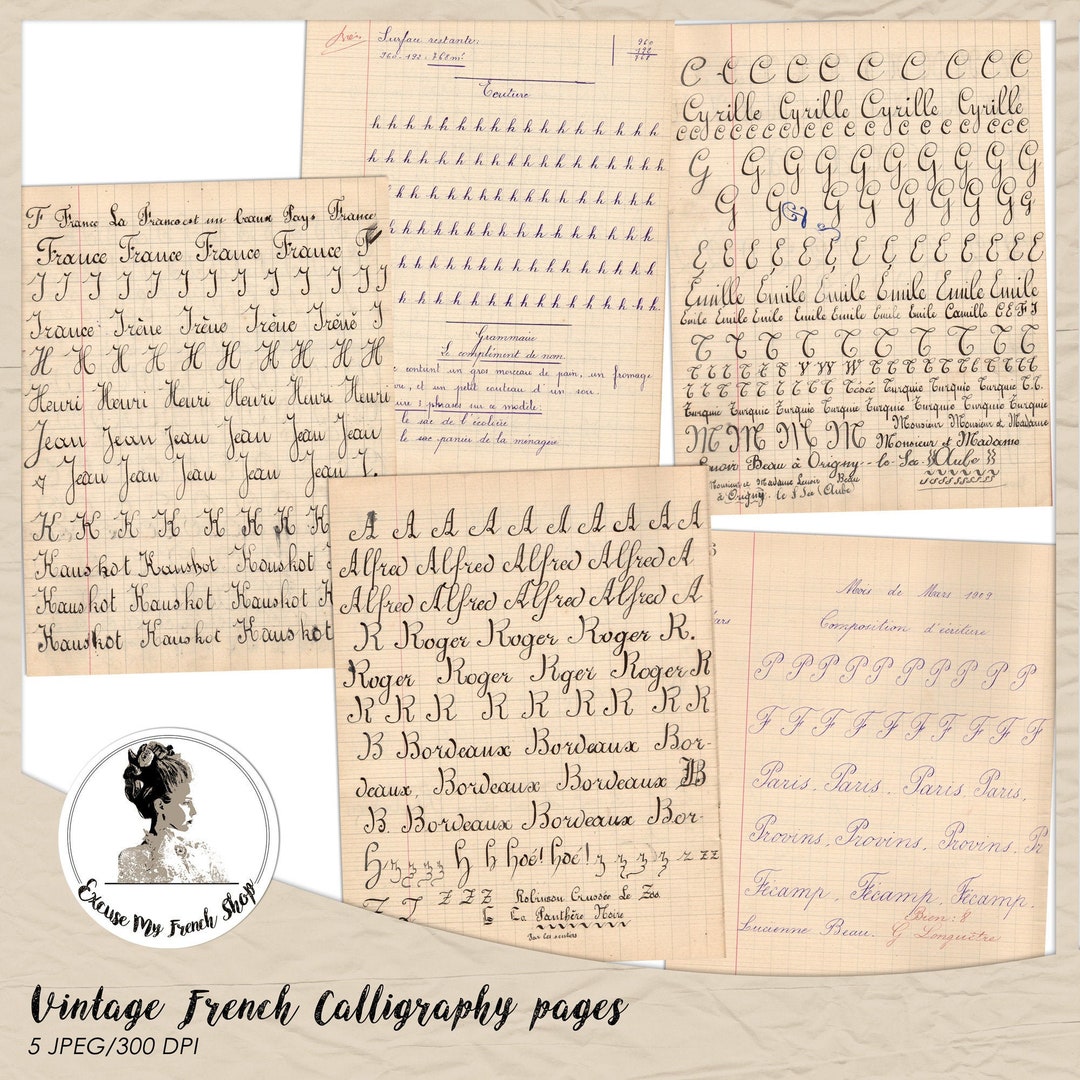 Surface restante:
960-192=768 m²
960
192
768
Ecriture
h h h h h h h h h h h h h h h h h h
h h h h h h h h h h h h h h h h h h
h h h h h h h h h h h h h h h h h
h h h h h h h h h h h h h h h h h
h h h h h h h h h h h h h h h h h
h h h h h h h h h h h h h h h h h
Grammaire
Le complément de nom.
contint un gros morceau de pain, un fromage
et un petit couteau d'un sou.
2 phrases sur ce modèle:
le sac de l'écolier
le panier de la ménagère
C C C C C C C C C C
Cyrille Cyrille Cyrille Cyrille
C C C C C C C C C C C C C C C C C C
G G G G G G G G G G
G G G G G G G G G
E E E E E E E E E E E
Emille Emile Emile Emile Emile Emile
Emile Emile Emile Emile Emile Emile Emile Camille C E F I
T T T T T T T T T
T T T T T T V W W T T T T T T T T T
T T T T T T T T T Turquie Turquie Turquie T.T.
Turquie Turquie Turquie Turquie Turquie Turquie Turquie Turquie
M M M M Monsieur Monsieur et Madame
Monsieur et Madame
Lenoir Beau à Origny-le-Sec (Aube)
Monsieur et Madame Lenoir Beau
à Origny le Sec (Aube)
F France La France est un beau Pays France
France France France France F
I I I I I I I I I I I I
France Irène Irène Irène Irène I
H H H H H H H H H
Henri Henri Henri Henri Henri
Jean Jean Jean Jean Jean Jean
Jean Jean Jean Jean J.
K K K K K K K K
Kauskot Kauskot Kauskot
Kauskot Kauskot Kauskot K
Kauskot Kauskot Kauskot
A A A A A A A A A A
Alfred Alfred Alfred Alfred A
Alfred Alfred Alfred Alfred A
R Roger Roger Roger R.
Roger Roger Rger Roger R
R R R R R R R R R R
B Bordeaux Bordeaux Bor-
deaux, Bordeaux Bordeaux B
B. Bordeaux Bordeaux Bor-
h z z z z h h hoé! hoé! z z z z z z z z
Z Z Z Robinson Crusoée Le Zoo
La Panthère Noire
Mois de Mars 1909
Composition d'écriture
P P P P P P P P P P
F F F F F F F F F F
Paris, Paris, Paris Paris,
Provins, Provins, Provins, Pr
Fécamp, Fécamp, Fécamp.
Bien: 8
Lucienne Beau. G Longuêtre
Excuse My French Shop
Vintage French Calligraphy pages
5 JPEG/300 DPI